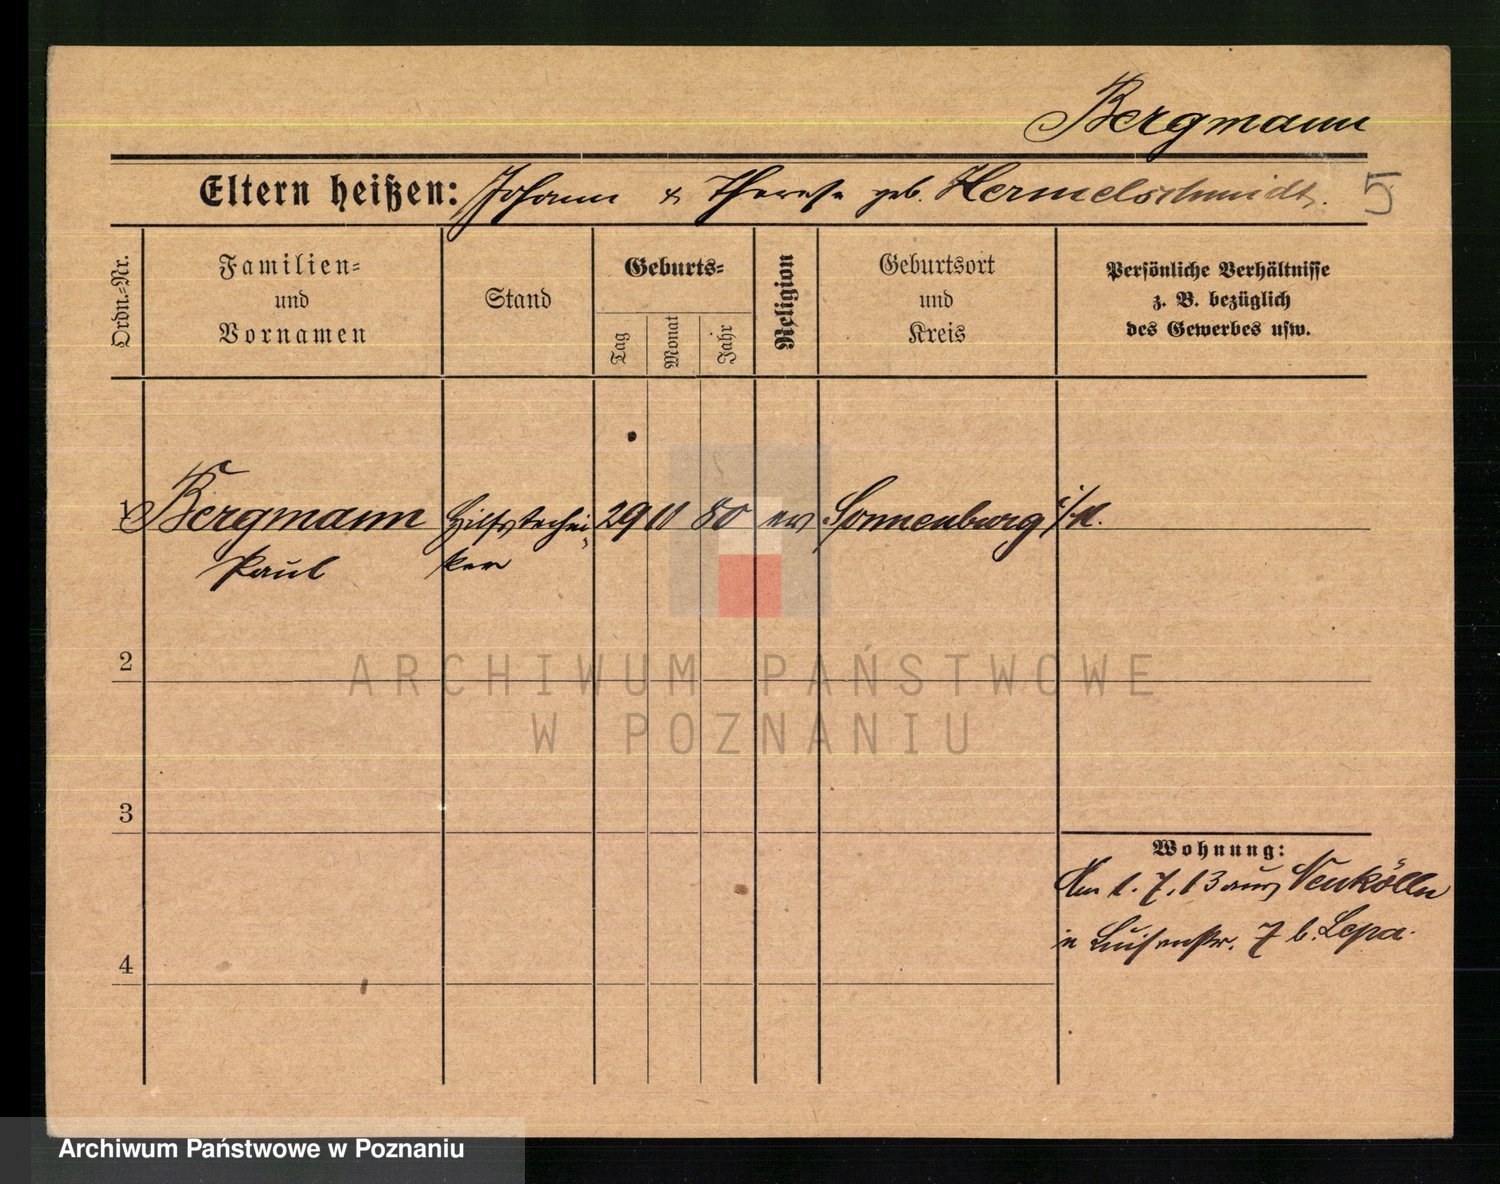 Bergmann
Eltern heißen: Johann & Therese geb. Hermelschmidt. 5
Ordn.=Nr.
Familien=
und
Vornamen
Stand
Geburts=
Tag
Monat
Jahr
Religion
Geburtsort
und
Kreis
Persönliche Verhältnisse
z. B. bezüglich
des Gewerbes usw.
1 Bergmann Hilfstechni- 29 11 80 ev Sonnenburg
Paul ker
2
ARCHIWUM PAŃSTWOWE
W POZNANIU
3
Wohnung:
Am 1. 7. 13 aus Neukölln
n Luisenstr. 7 b. Lepa.
4
Archiwum Państwowe w Poznaniu